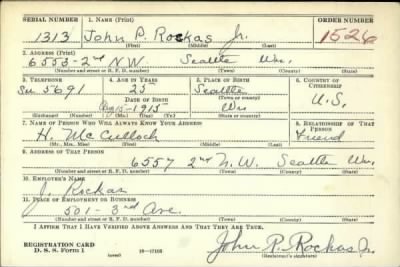 SERIAL NUMBER 1. NAME (Print) ORDER NUMBER
1313 John P. Rockas Jr. 1526
(First) (Middle) (Last)
2. ADDRESS (Print)
6553-2nd N.W. Seattle Wn.
(Number and street or R. F. D. number) (Town) (County) (State)
3. TELEPHONE 4. AGE IN YEARS 5. PLACE OF BIRTH 6. COUNTRY OF CITIZENSHIP
Su 5691 25 Seattle
DATE OF BIRTH (Town or county)
Aug 15-1915 Wn U.S.
(Exchange) (Number) (Mo.) (Day) (Yr.) (State or country)
7. NAME OF PERSON WHO WILL ALWAYS KNOW YOUR ADDRESS 8. RELATIONSHIP OF THAT PERSON
H. McCulloch Friend
(Mr., Mrs., Miss) (First) (Middle) (Last)
9. ADDRESS OF THAT PERSON
6557 2nd N.W. Seattle Wn.
(Number and street or R. F. D. number) (Town) (County) (State)
10. EMPLOYER'S NAME
J. Rockas
11. PLACE OF EMPLOYMENT OR BUSINESS
501-3rd Ave.
(Number and street or R. F. D. number) (Town) (County) (State)
I AFFIRM THAT I HAVE VERIFIED ABOVE ANSWERS AND THAT THEY ARE TRUE.
REGISTRATION CARD
D. S. S. Form 1 John P. Rockas Jr.
(Registrant's signature)